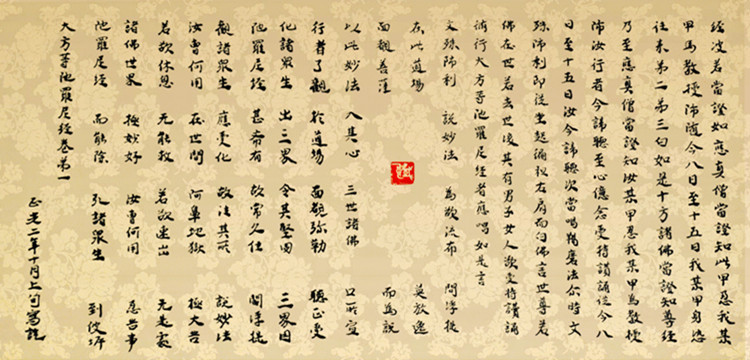 經波若當證知應真僧當證知此甲忍我某
甲為教授師隨今八日至十五日我某甲身恣
往來第二第三句如是十方諸佛當證知尊經
乃至應真僧當證知汝某甲忍我某甲為教授
師汝行者今諦聽至心憶念受持讀誦從今八
日至十五日汝今諦聽次當唱羯磨法尒時文
殊師利即從坐起偏袒右肩而白佛言世尊若
佛在世若去世後其有男子女人欲受持讀誦
修行大方等陀羅尼經者應唱如是言
文殊師利 說妙法 為欲流布 閻浮提
在此道場 莫放逸
面覩菩薩 而為說
以此妙法 入其心 三世諸佛 口所宣
行者了觀 於道場 面覩弥勒 聽正受
化諸眾生 出三界 令其堅固 三界因
陀羅尼經 甚希有 故常久住 閻浮提
觀諸眾生 應受化 故法其所 說妙法
汝曹何用 在世間 阿鼻地獄 極大苦
若欲休息 无能救 若欲速出 无是處
諸佛世界 極妙好 汝曹何用 忍苦事
陀羅尼經 而能除 孔諸眾生 到彼岸
大方等陀羅尼經卷第一
正光二年十月上旬寫訖